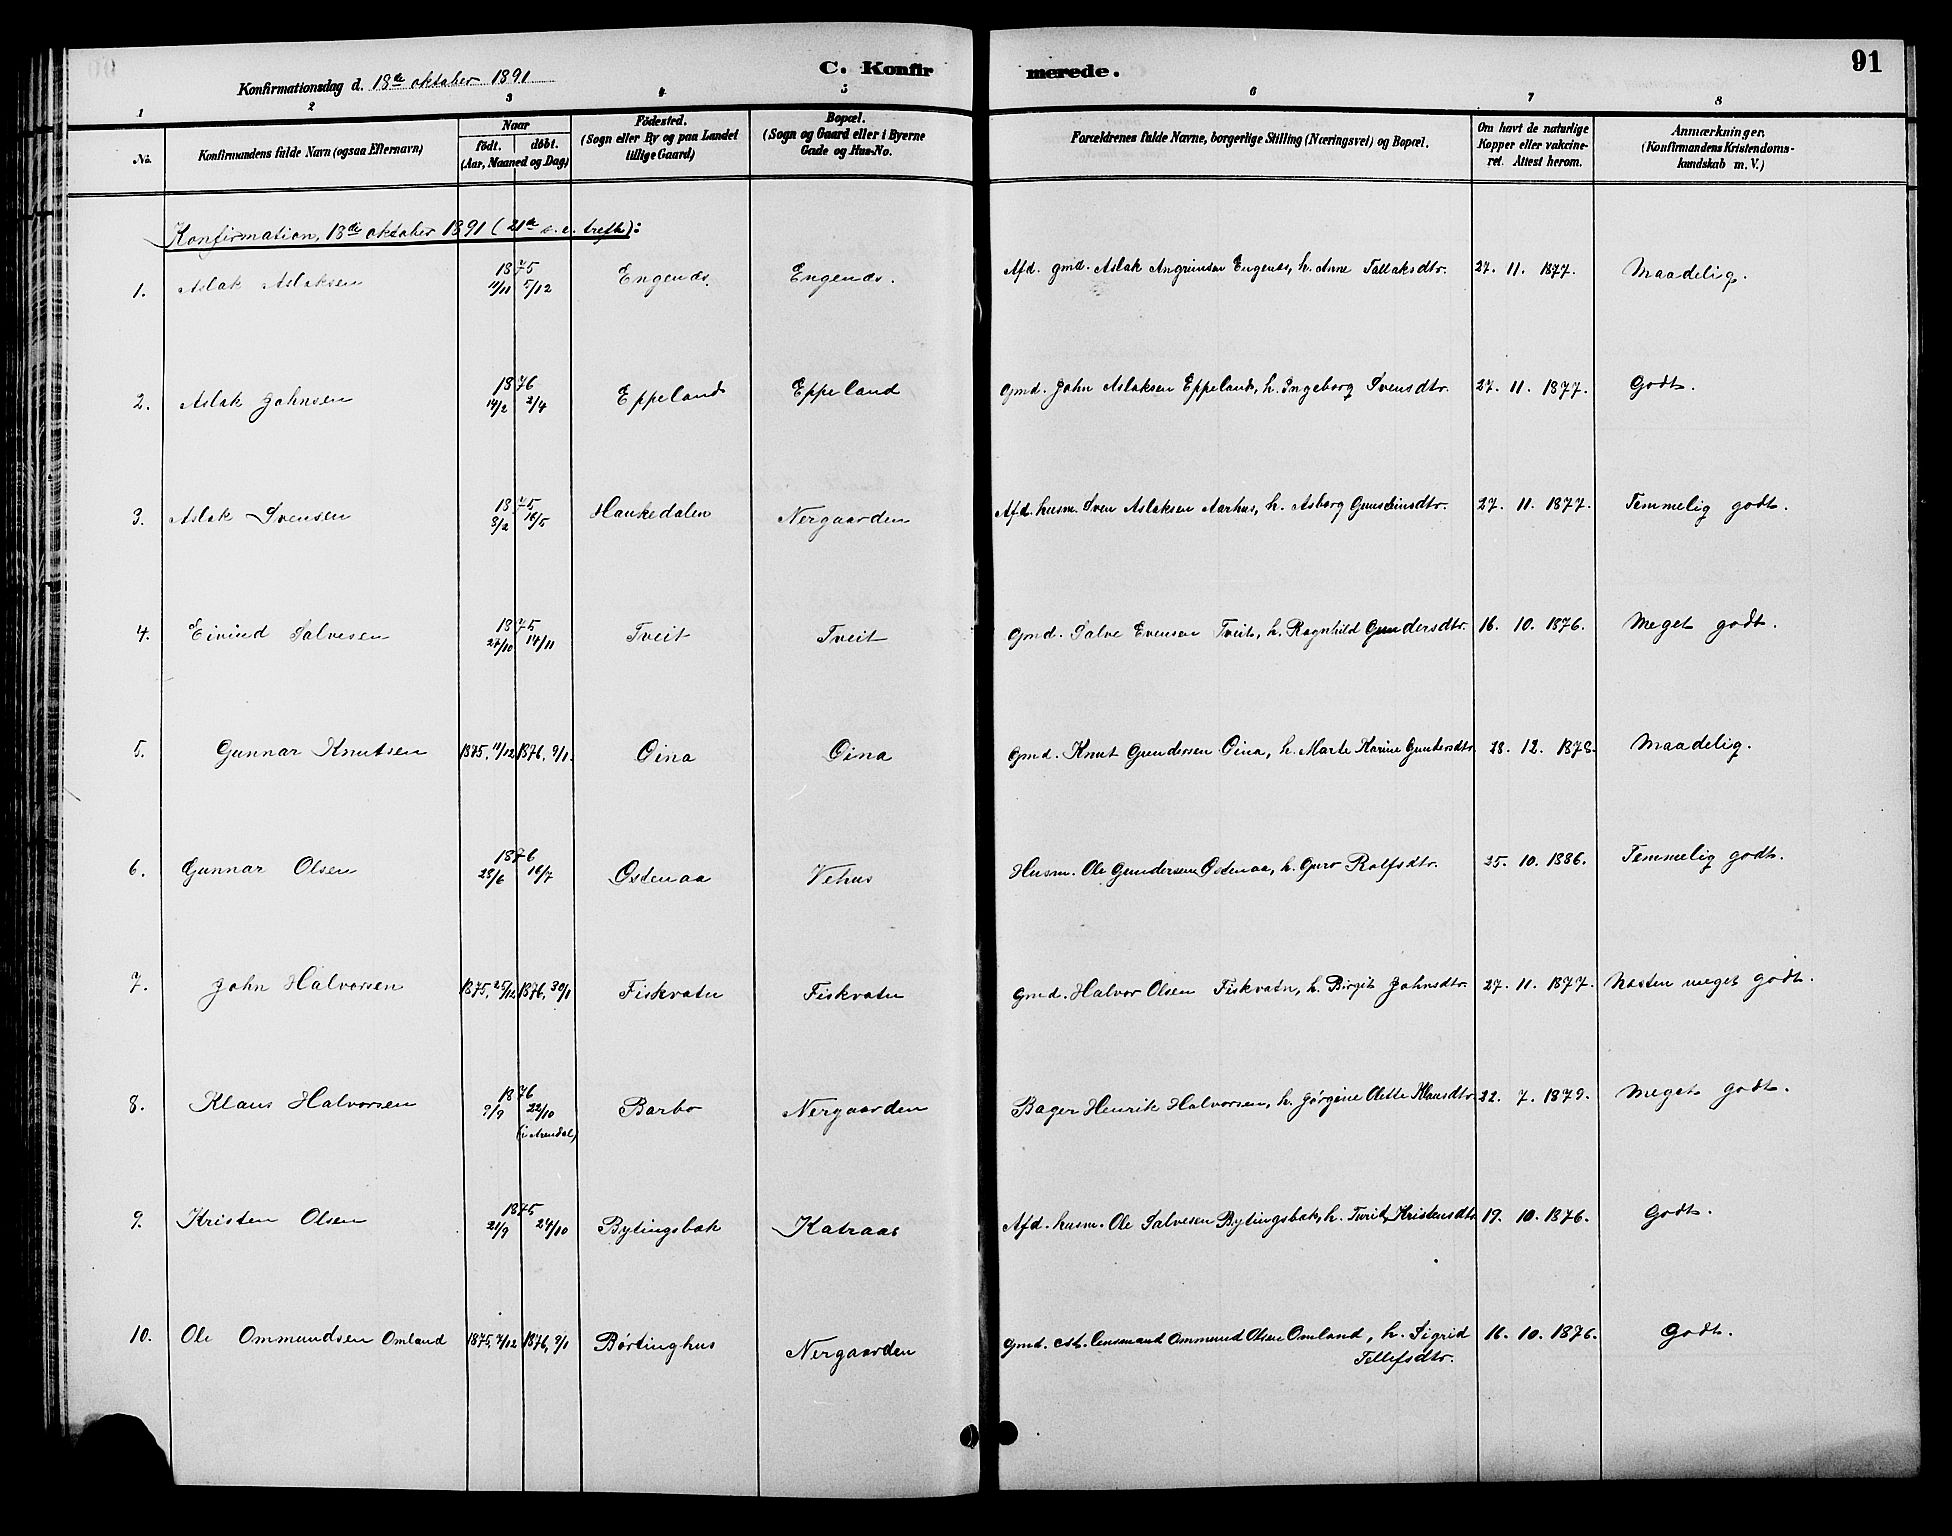 Konfirmationsdag d. 18de oktober 1891
C. Konfir
merede.
91
1 2 3 4 5 6 7 8
No.
Konfirmandens fulde Navn (ogsaa Efternavn)
Naar
födt. döbt.
(Aar, Maaned og Dag)
Födested.
(Sogn eller By og paa Landet
tillige Gaard)
Bopæl.
(Sogn og Gaard eller i Byerne
Gade og Hus-No.
Forældrenes fulde Navne, borgerlige Stilling (Næringsvei) og Bopæl.
Om havt de naturlige
Kopper eller vakcine-
ret. Attest herom.
Anmærkninger.
(Konfirmandens Kristendoms-
kundskab m. V.)
Konfirmation, 18de oktober 1891 (21de s. e. trefh):
1. Aslak Aslaksen 1875 11/11 5/12 Engenæs. Engenæs. Afd. gmd. Aslak Angrimsen Engenæs, h. Anne Tallaksdtr. 27. 11. 1877. Maadelig.
2. Aslak Johnsen 1876 14/2 2/4 Eppeland Eppeland Gmd. John Aslaksen Eppeland, h. Ingeborg Svensdtr. 27. 11. 1877. Godt.
3. Aslak Svensen 1875 3/2 16/5 Haukedalen Nergaarden Afd. husm. Sven Aslaksen Aarhus, h. Asborg Gunsteinsdtr. 27. 11. 1877. Temmelig godt.
4. Eivind Salvesen 1875 27/10 14/11 Tveit Tveit Gmd. Salve Evensen Tveit, h. Ragnhild Gundersdtr. 16. 10. 1876. Meget godt.
5. Gunnar Knutsen 1875, 11/12 1876, 9/1. Oina Oina Gmd. Knut Gundersen Oina, h. Marte Karine Guntersdtr. 28. 12. 1878. Maadelig.
6. Gunnar Olsen 1876 28/6 16/7 Ostenaa Vehus Husm. Ole Gundersen Ostenaa, h. Guro Rolfsdtr. 25. 10. 1886. Temmelig godt.
7. John Halvorsen 1875, 25/12 1876, 30/1 Fiskvatn Fiskvatn Gmd. Halvor Olsen Fiskvatn, h. Birgit Johnsdtr. 27. 11. 1877. Næsten meget godt.
8. Klaus Halvorsen 1876 9/9 22/10 Barbo Nergaarden Bager Henrik Halvorsen, h. Jørgine Olette Klausdtr. 22. 7. 1879. Meget godt.
(i Arendal)
9. Kristen Olsen 1875 21/9 24/10 Bytingsbak Katraas Afd. husm. Ole Salvesen Bytingsbak, h. Turid Kristensdtr 19. 10. 1876. Godt.
10. Ole Ommundsen Omland 1875, 7/12 1876, 9/1 Børtinghus Nergaarden Gmd. cst. lensmand Ommund Olsen Omland, h. Sigrid 16. 10. 1876. Godt.
Tellefsdtr.